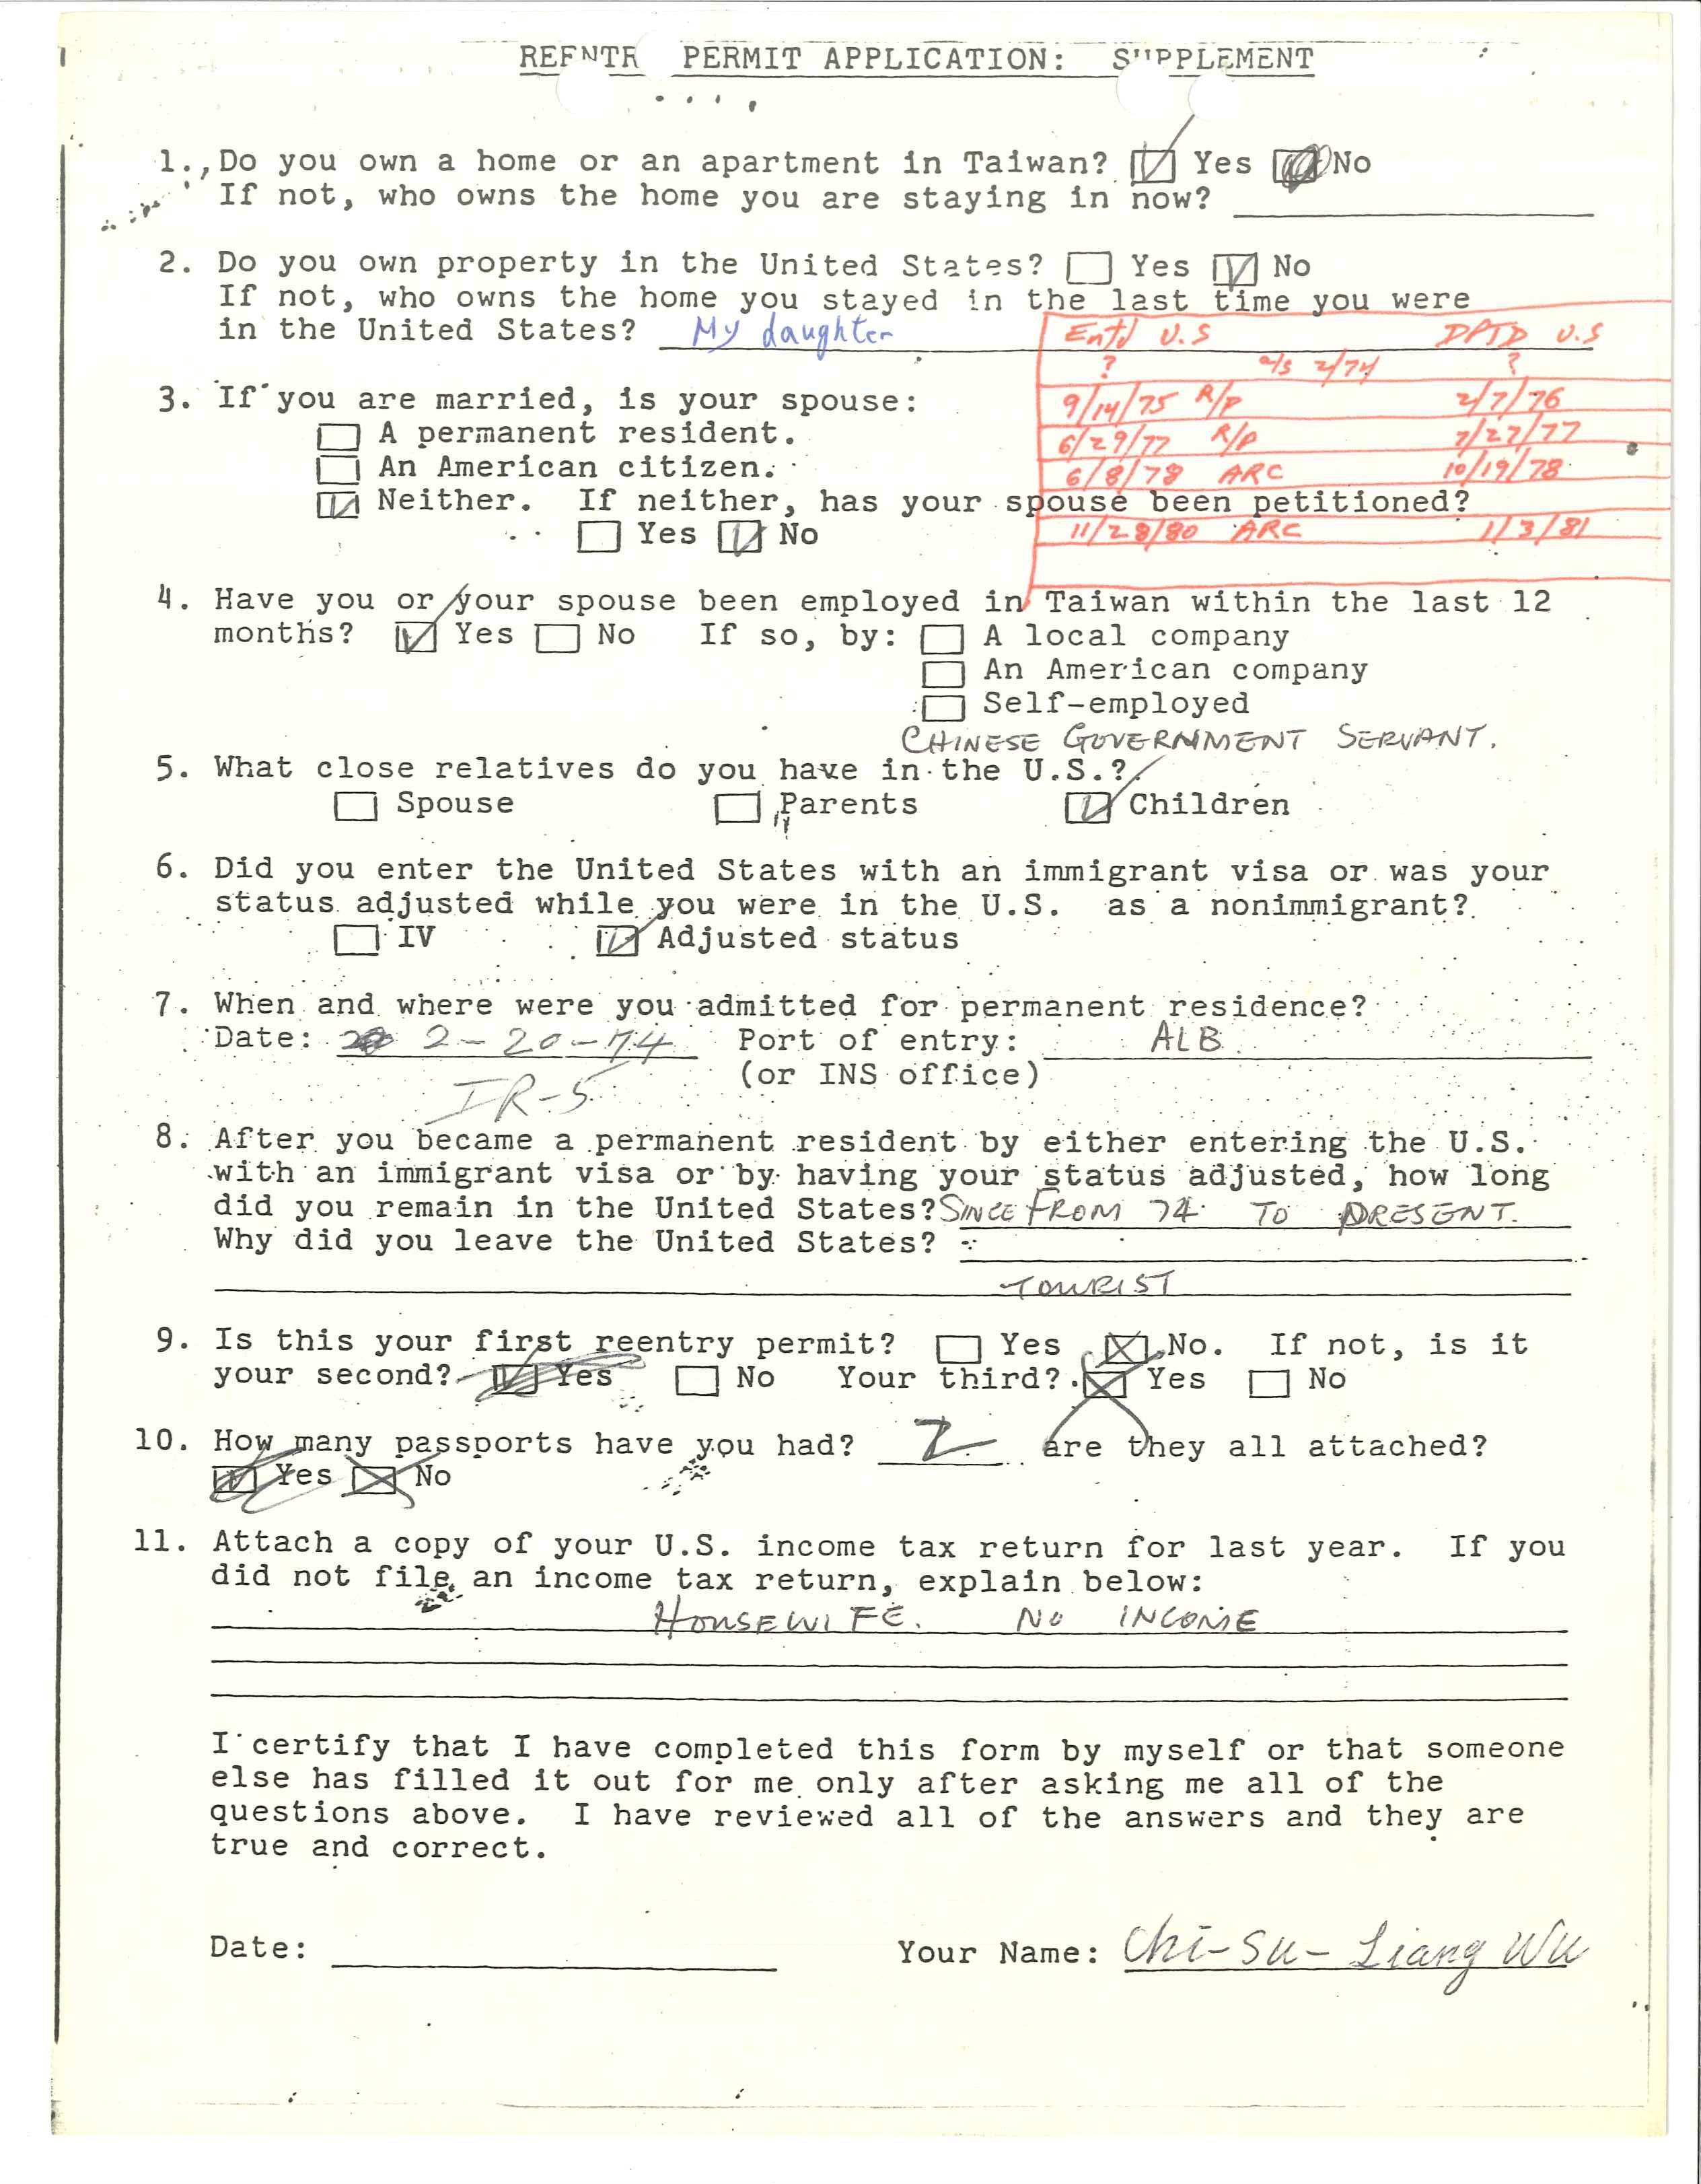 REENTR PERMIT APPLICATION: SUPPLEMENT
1. Do you own a home or an apartment in Taiwan? Yes No
If not, who owns the home you are staying in now?
2. Do you own property in the United States? Yes No
If not, who owns the home you stayed in the last time you were
in the United States? My daughter
Entd U.S DPTD U.S
? a/s 2/74 ?
9/14/75 R/P 2/7/76
6/29/77 R/P 7/27/77
6/8/78 ARC 10/19/78
11/28/80 ARC 1/3/81
3. If you are married, is your spouse:
A permanent resident.
An American citizen.
Neither. If neither, has your spouse been petitioned?
Yes No
4. Have you or your spouse been employed in Taiwan within the last 12
months? Yes No If so, by: A local company
An American company
Self-employed
CHINESE GOVERNMENT SERVANT.
5. What close relatives do you have in the U.S.?
Spouse Parents Children
6. Did you enter the United States with an immigrant visa or was your
status adjusted while you were in the U.S. as a nonimmigrant?
IV Adjusted status
7. When and where were you admitted for permanent residence?
Date: 2-20-74 Port of entry: ALB
(or INS office)
IR-5
8. After you became a permanent resident by either entering the U.S.
with an immigrant visa or by having your status adjusted, how long
did you remain in the United States? SINCE FROM 74 TO PRESENT.
Why did you leave the United States?
TOURIST
9. Is this your first reentry permit? Yes No. If not, is it
your second? Yes No Your third? Yes No
10. How many passports have you had? 2 are they all attached?
Yes No
11. Attach a copy of your U.S. income tax return for last year. If you
did not file an income tax return, explain below:
HOUSEWIFE. NO INCOME
I certify that I have completed this form by myself or that someone
else has filled it out for me only after asking me all of the
questions above. I have reviewed all of the answers and they are
true and correct.
Date: Your Name: Chi-Su-Liang Wu